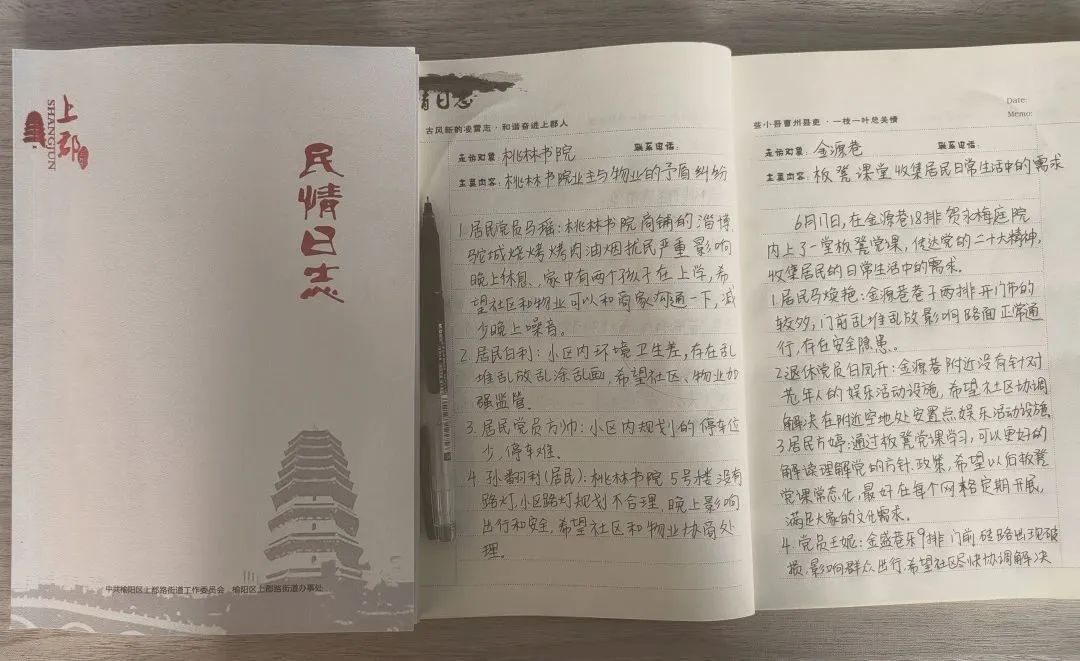 上郡
SHANGJUN
民情日志
中共榆阳区上郡路街道工作委员会 榆阳区上郡路街道办事处
情日志
古风新韵凌霄志·和谐奋进上郡人
走访对象：桃林书院 联系电话：
主要内容：桃林书院业主与物业的矛盾纠纷
1.居民党员马瑶：桃林书院商铺的淄博
驼城烧烤烤肉油烟扰民严重影响
晚上休息、家中有两个孩子在上学，希
望社区和物业可以和商家沟通一下，减
少晚上噪音。
2.居民白利：小区内环境卫生差，存在乱
堆乱放乱涂乱画，希望社区、物业加
强监管。
3.居民党员方帅：小区内规划的停车位
少，停车难。
4.孙翻利（居民）：桃林书院5号楼没有
路灯，小区路灯规划不合理，晚上影响
出行和安全，希望社区和物业协商处
理。
些小吾曹州县吏·一枝一叶总关情
Date:
Memo:
走访对象：金源巷 联系电话：
主要内容：板凳课堂收集居民日常生活中的需求
6月17日，在金源巷18排贺永梅庭院
内上了一堂板凳党课，传达党的二十大精神，
收集居民的日常生活中的需求。
1.居民马焕艳：金源巷巷子两排开门市的
较多，门前乱堆乱放影响路面正常通
行，存在安全隐患。
2.退休党员白凤开：金源巷附近没有针对
老年人的娱乐活动设施，希望社区协调
解决在附近空地处安置点娱乐活动设施
3.居民方婷：通过板凳党课学习，可以更好的
解读理解党的方针.政策，希望以后板凳
党课常态化，最好在每个网格定期开展，
满足大家的文化需求。
4.党员王妮：金盛巷东9排门前砖路出现破
损，影响群众出行，希望社区尽快协调解决